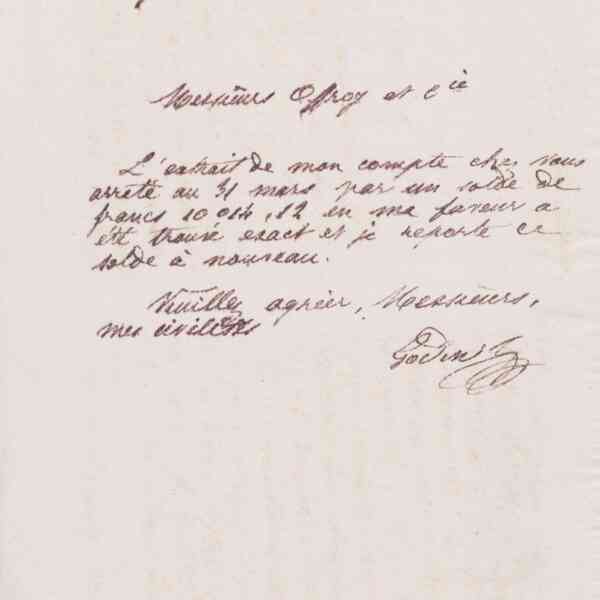 Messieurs Offroy et Cie
L'extrait de mon compte chez vous
arrêté au 31 mars par un solde de
francs 10 014,12 en ma faveur a
été trouvé exact et je reporte ce
solde à nouveau.
Veuillez agréer, Messieurs,
mes civilités
Godin